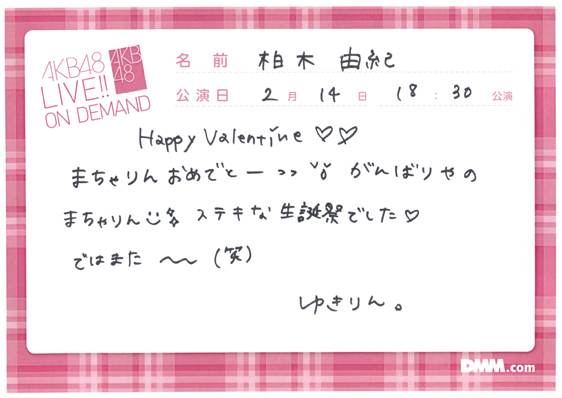 AKB48
LIVE!!
ON DEMAND
AKB
48
名前 柏木 由紀
公演日 2月 14日 18:30 公演
Happy Valentine♡♡
まちゃりんおめでとー>> がんばりやの
まちゃりん ステキな生誕祭でした♡
ではまた 〜〜 (笑)
ゆきりん。
DMM.com